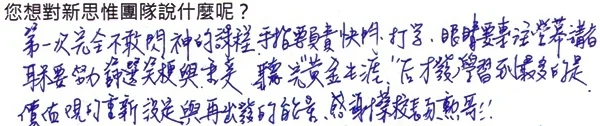 您想對新思惟團隊說什麼呢？
第一次完全不敢閃神的課程，手指要負責快門、打字、眼睛要專注螢幕講者
耳朵要努力篩選笑梗與未美 聽完"黃金七渡"后才發學習到最多的是
價值觀的重新設定與再出發的能量、感謝蔡校長勳哥!!